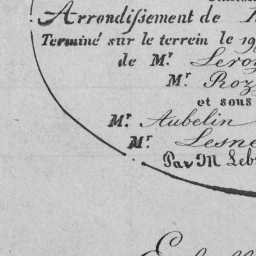 Arrondissement de
Terminé sur le terrein le 19
de Mr. Leroy
Mr. Roz
et sous
Mr. Aubelin
Mr. Lesne
Par M Leb
Echelle